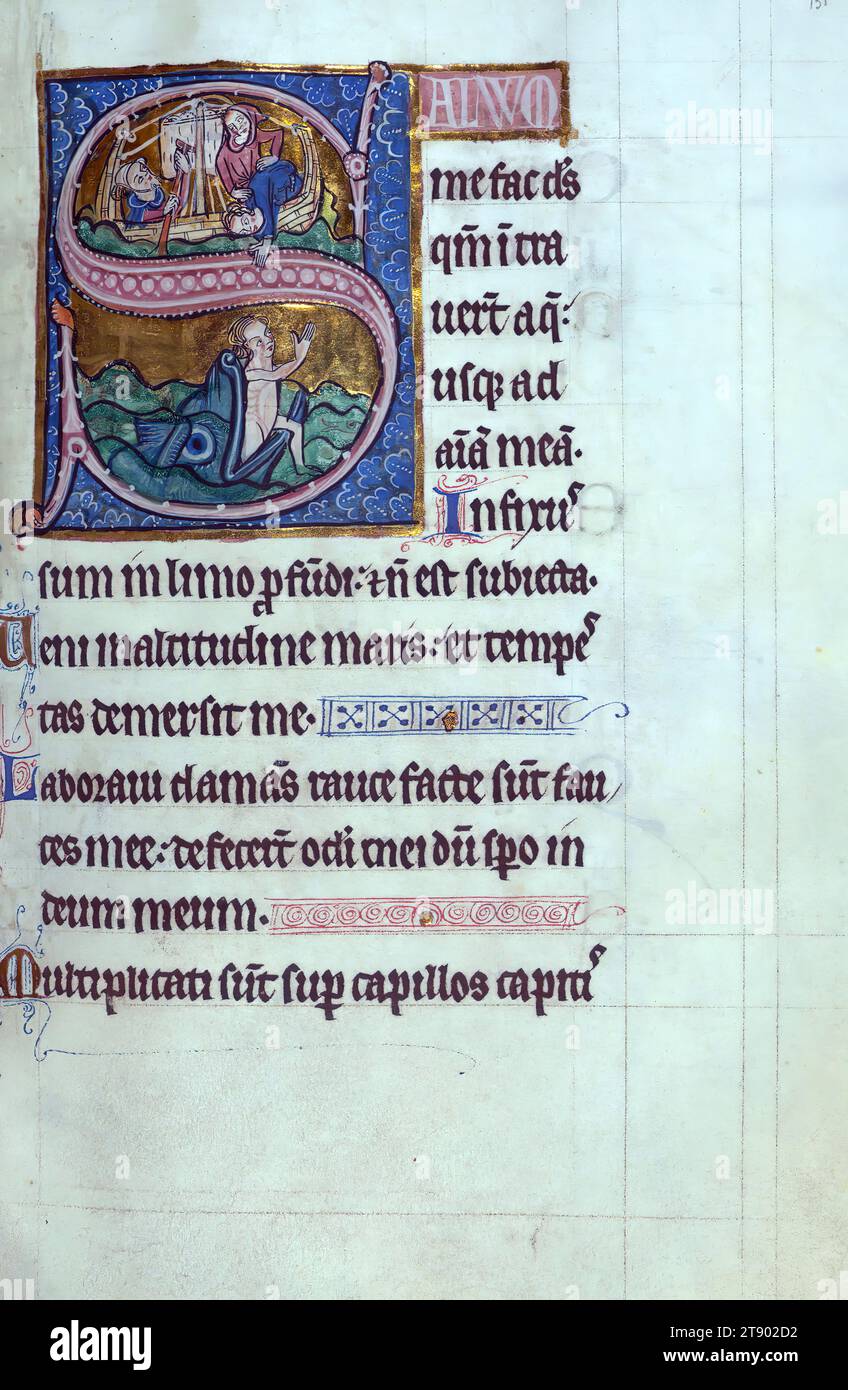 SALUUM
me fac ds̄
qm̄ ītra
uer̄t aq̄:
usq; ad
aīā meā.
Infixus
sum in limo ꝓfūdi: ⁊ n̄ est subiecta.
Ueni in altitudine maris: et tempes
tas demersit me.
Laboraui clamās rauce facte sūt fau
ces mee: defecer̄t oc̄li mei dū sp̄o in
deum meum.
Multiplicati sūt suꝑ capillos capitis
alamy
Image ID: 2T902D2
www.alamy.com